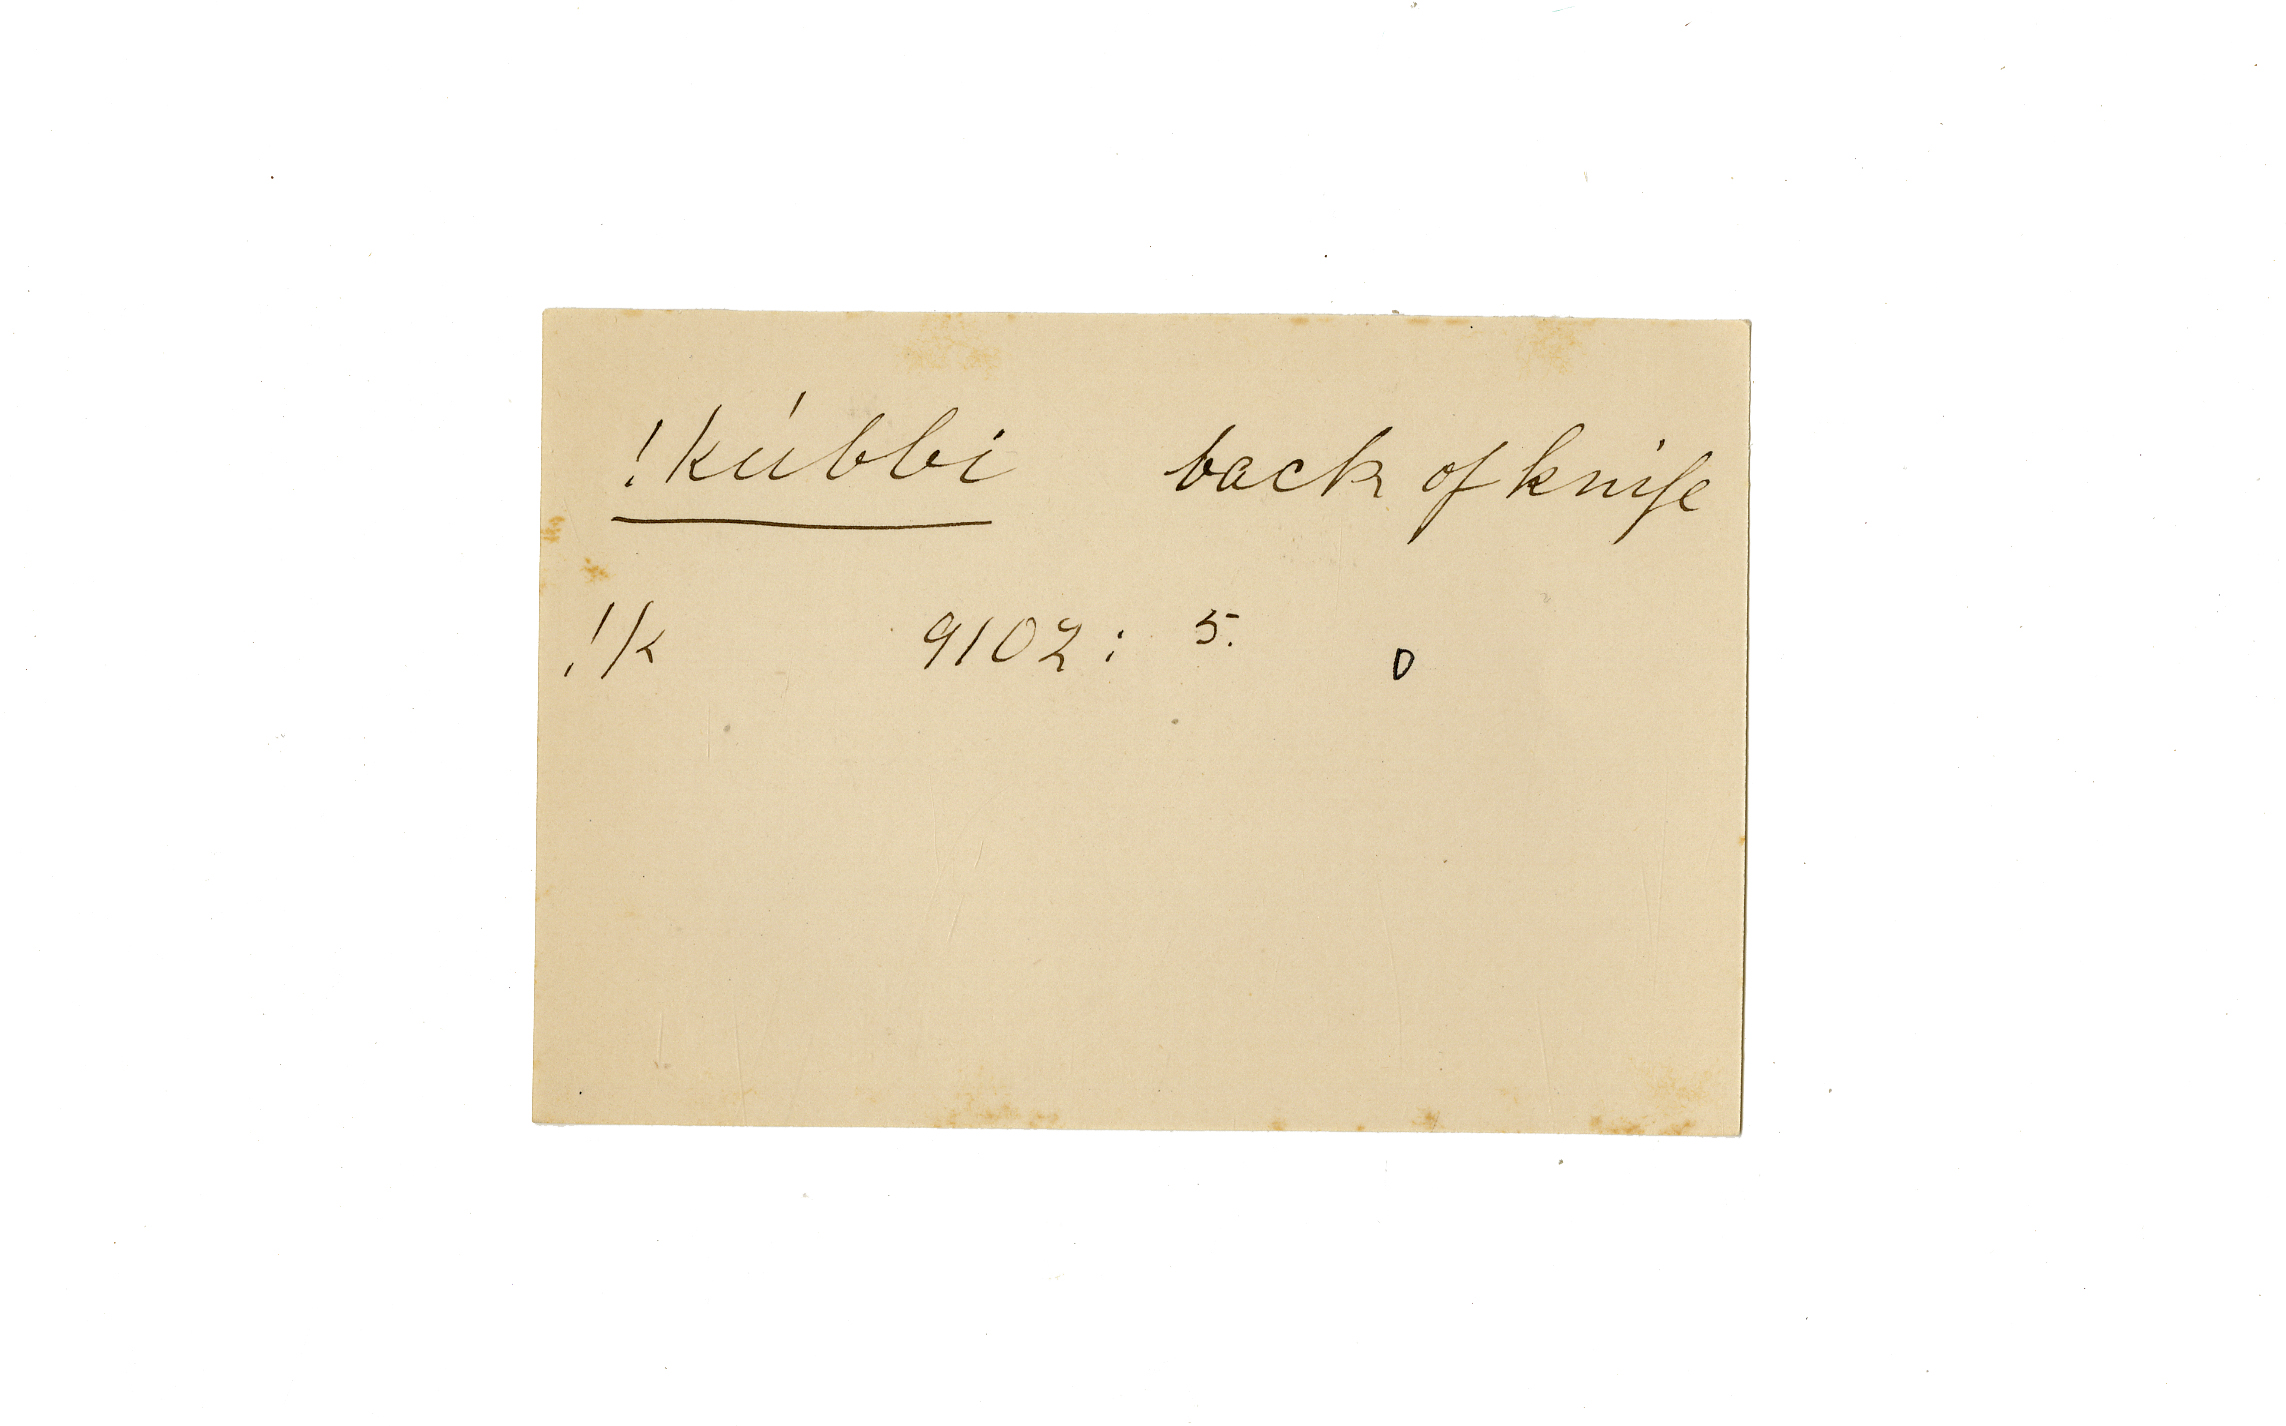 !kúbbi back of knife
!k 9102: 5. D